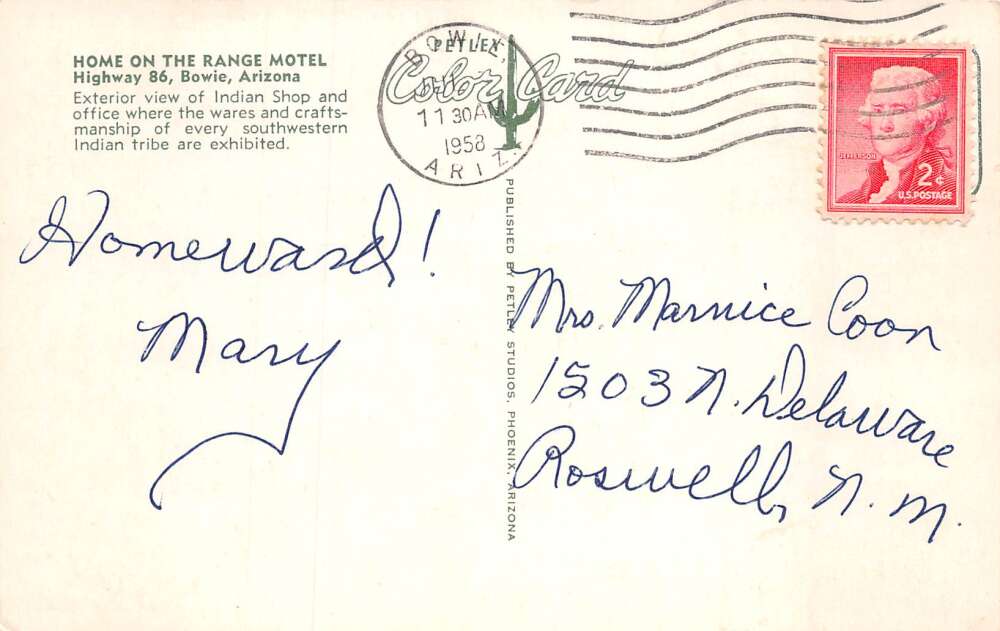 HOME ON THE RANGE MOTEL
Highway 86, Bowie, Arizona
Exterior view of Indian Shop and
office where the wares and crafts-
manship of every southwestern
Indian tribe are exhibited.
PETLEY
Color Card
BOWIE,
11 30 AM
1958
ARIZ.
JEFFERSON
2¢
U.S. POSTAGE
Homeward!
Mary
PUBLISHED BY PETLEY STUDIOS, PHOENIX, ARIZONA
Mrs. Marnice Coon
1203 N. Delaware
Roswell, N. M.